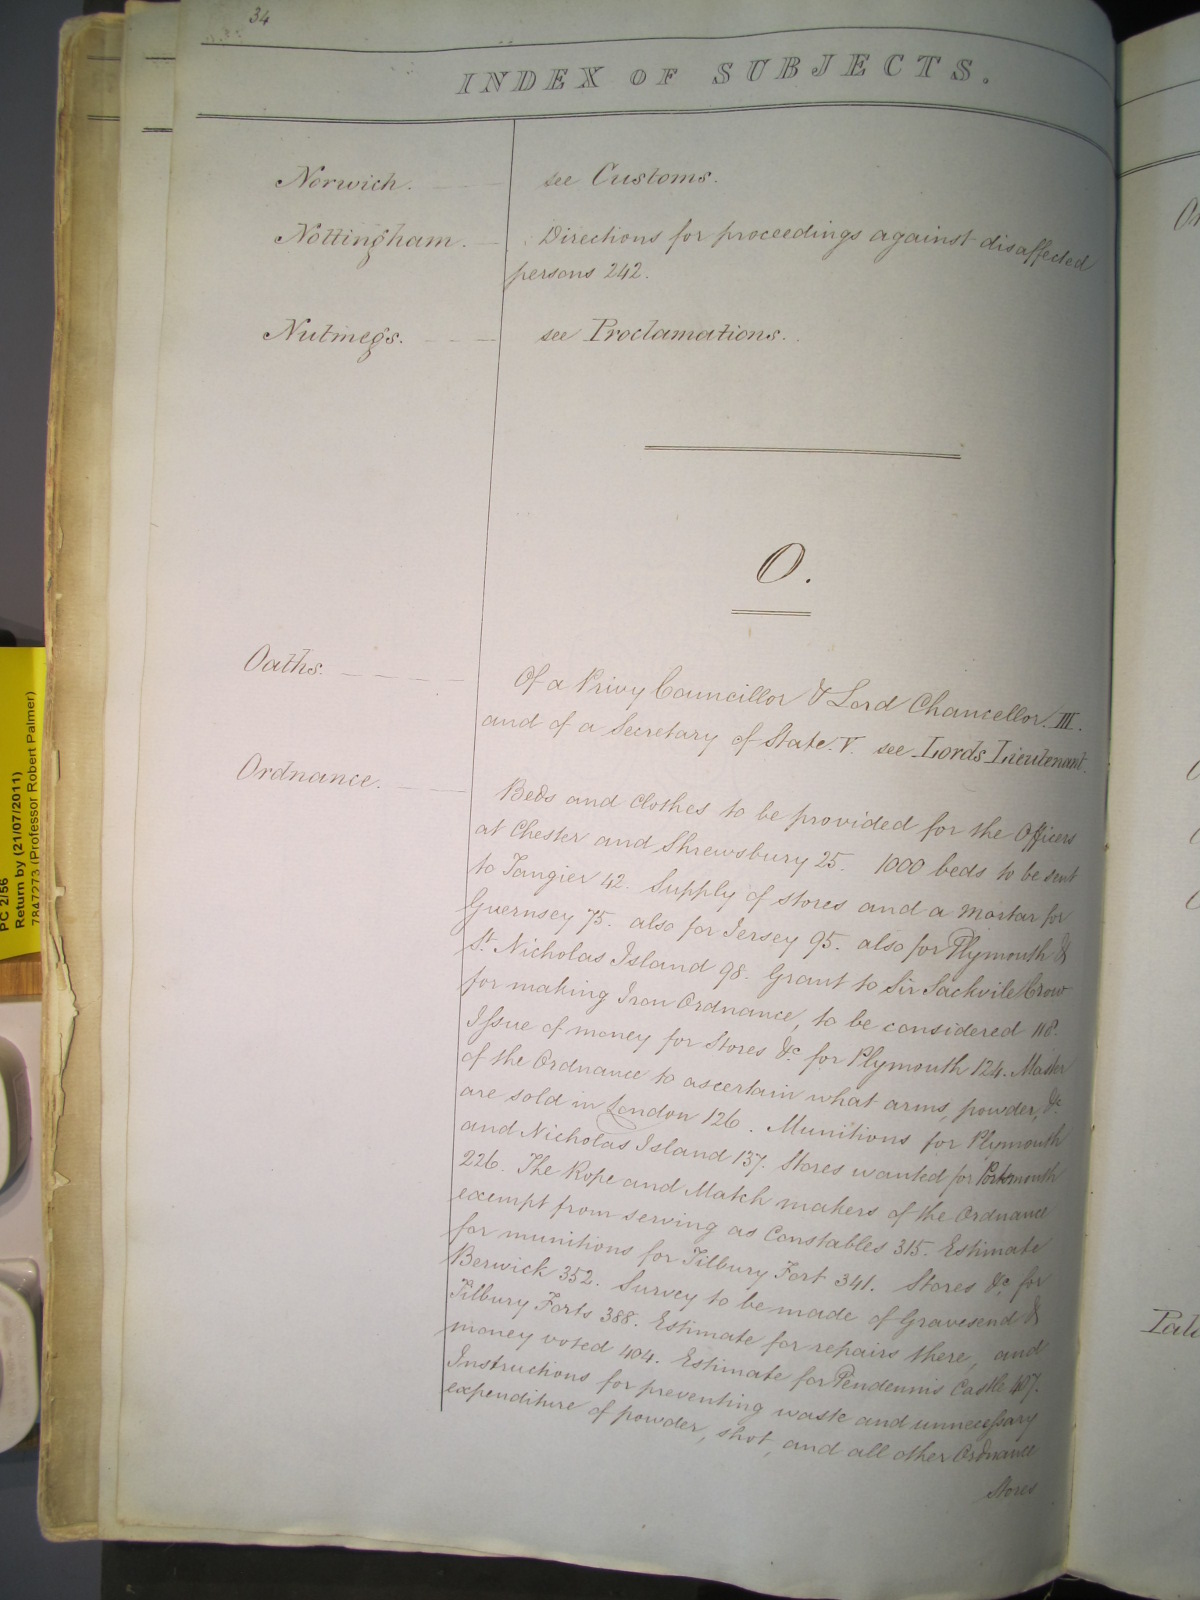 34
INDEX OF SUBJECTS.
Norwich. see Customs.
Nottingham. Directions for proceedings against disaffected
persons 242.
Nutmegs. see Proclamations.
O.
Oaths. Of a Privy Councillor & Lord Chancellor. III.
and of a Secretary of State. V. see Lords Lieutenant.
Ordnance. Beds and Clothes to be provided for the Officers
at Chester and Shrewsbury 25. 1000 beds to be sent
to Tangier 42. Supply of stores and a Mortar for
Guernsey 75. also for Jersey 95. also for Plymouth &
St. Nicholas Island 98. Grant to Sir Sackvile Crow
for making Iron Ordnance, to be considered 118.
Issue of money for Stores &c. for Plymouth 124. Master
of the Ordnance to ascertain what arms, powder, &c.
are sold in London 126. Munitions for Plymouth
and Nicholas Island 137. Stores wanted for Portsmouth
226. The Rope and Match makers of the Ordnance
exempt from serving as Constables 315. Estimate
for munitions for Tilbury Fort 341. Stores &c. for
Berwick 352. Survey to be made of Gravesend &
Tilbury Forts 388. Estimate for repairs there, and
money voted 404. Estimate for Pendennis Castle 407.
Instructions for preventing waste and unnecessary
expenditure of powder, shot, and all other Ordnance
Stores
PC 2/56
Return by (21/07/2011)
7847273 (Professor Robert Palmer)